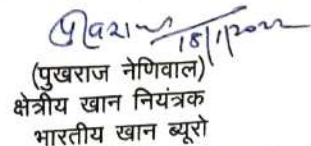 18/1/2022
(पुखराज नेणिवाल)
क्षेत्रीय खान नियंत्रक
भारतीय खान ब्यूरो